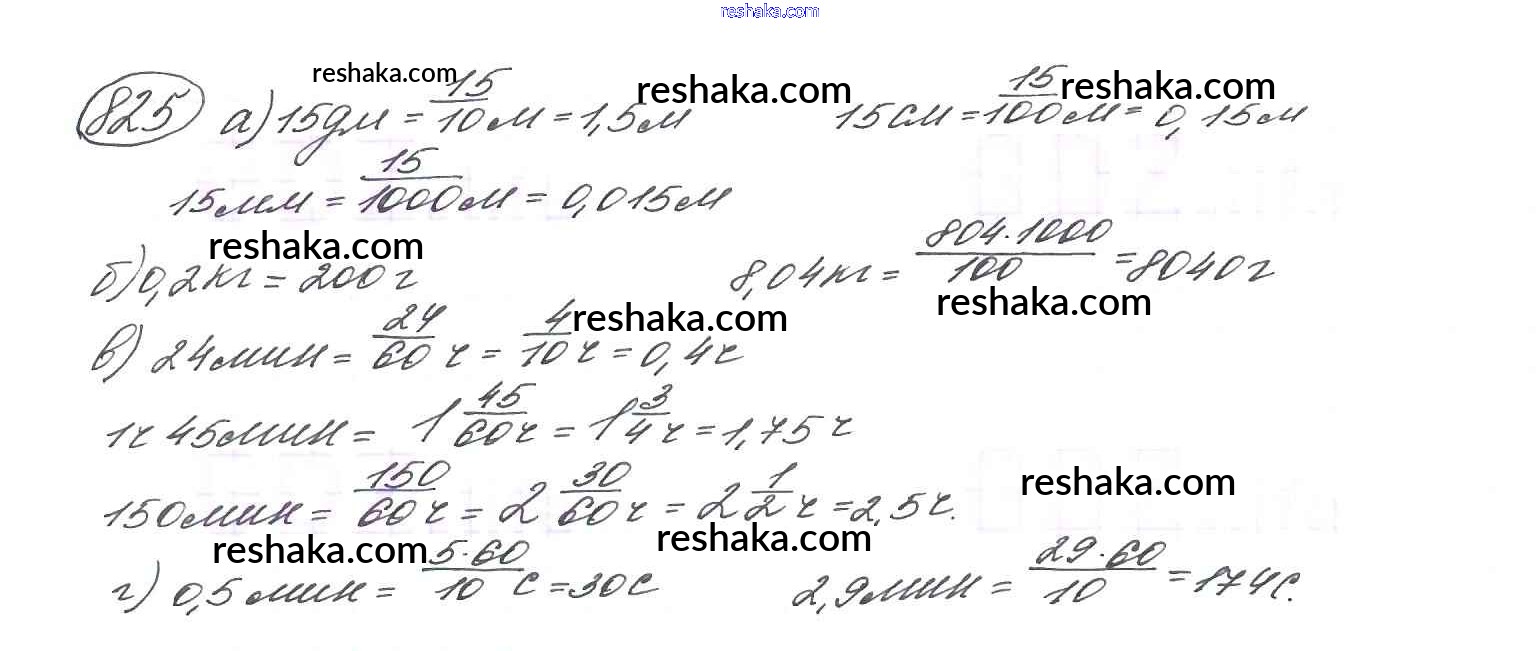 reshaka.com
825 а) 15дм = 15/10 м = 1,5м 15см = 15/100 м = 0,15м
reshaka.com reshaka.com reshaka.com
15мм = 15/1000 м = 0,015м
reshaka.com
б) 0,2кг = 200г 8,04кг = 804·1000/100 = 8040г
reshaka.com
в) 24мин = 24/60 ч = 4/10 ч = 0,4ч
reshaka.com
1ч 45мин = 1 45/60 ч = 1 3/4 ч = 1,75ч
150мин = 150/60 ч = 2 30/60 ч = 2 1/2 ч = 2,5ч.
reshaka.com
reshaka.com reshaka.com
г) 0,5мин = 5·60/10 с = 30с 2,9мин = 29·60/10 = 174с.